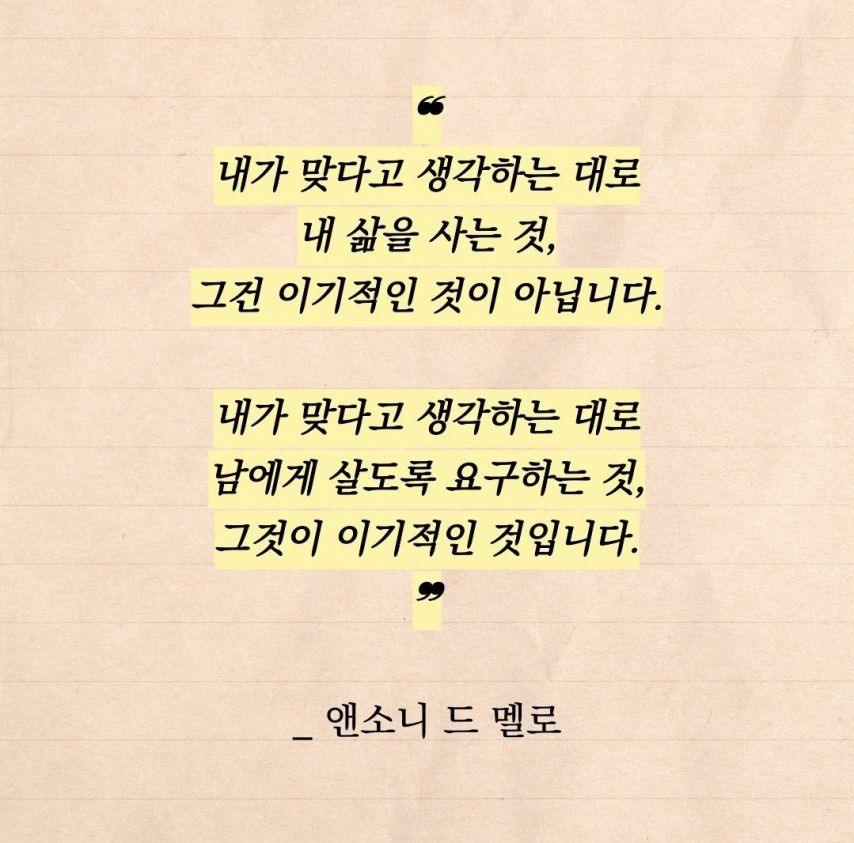 ❝
내가 맞다고 생각하는 대로
내 삶을 사는 것,
그건 이기적인 것이 아닙니다.
내가 맞다고 생각하는 대로
남에게 살도록 요구하는 것,
그것이 이기적인 것입니다.
❞
_ 앤소니 드 멜로